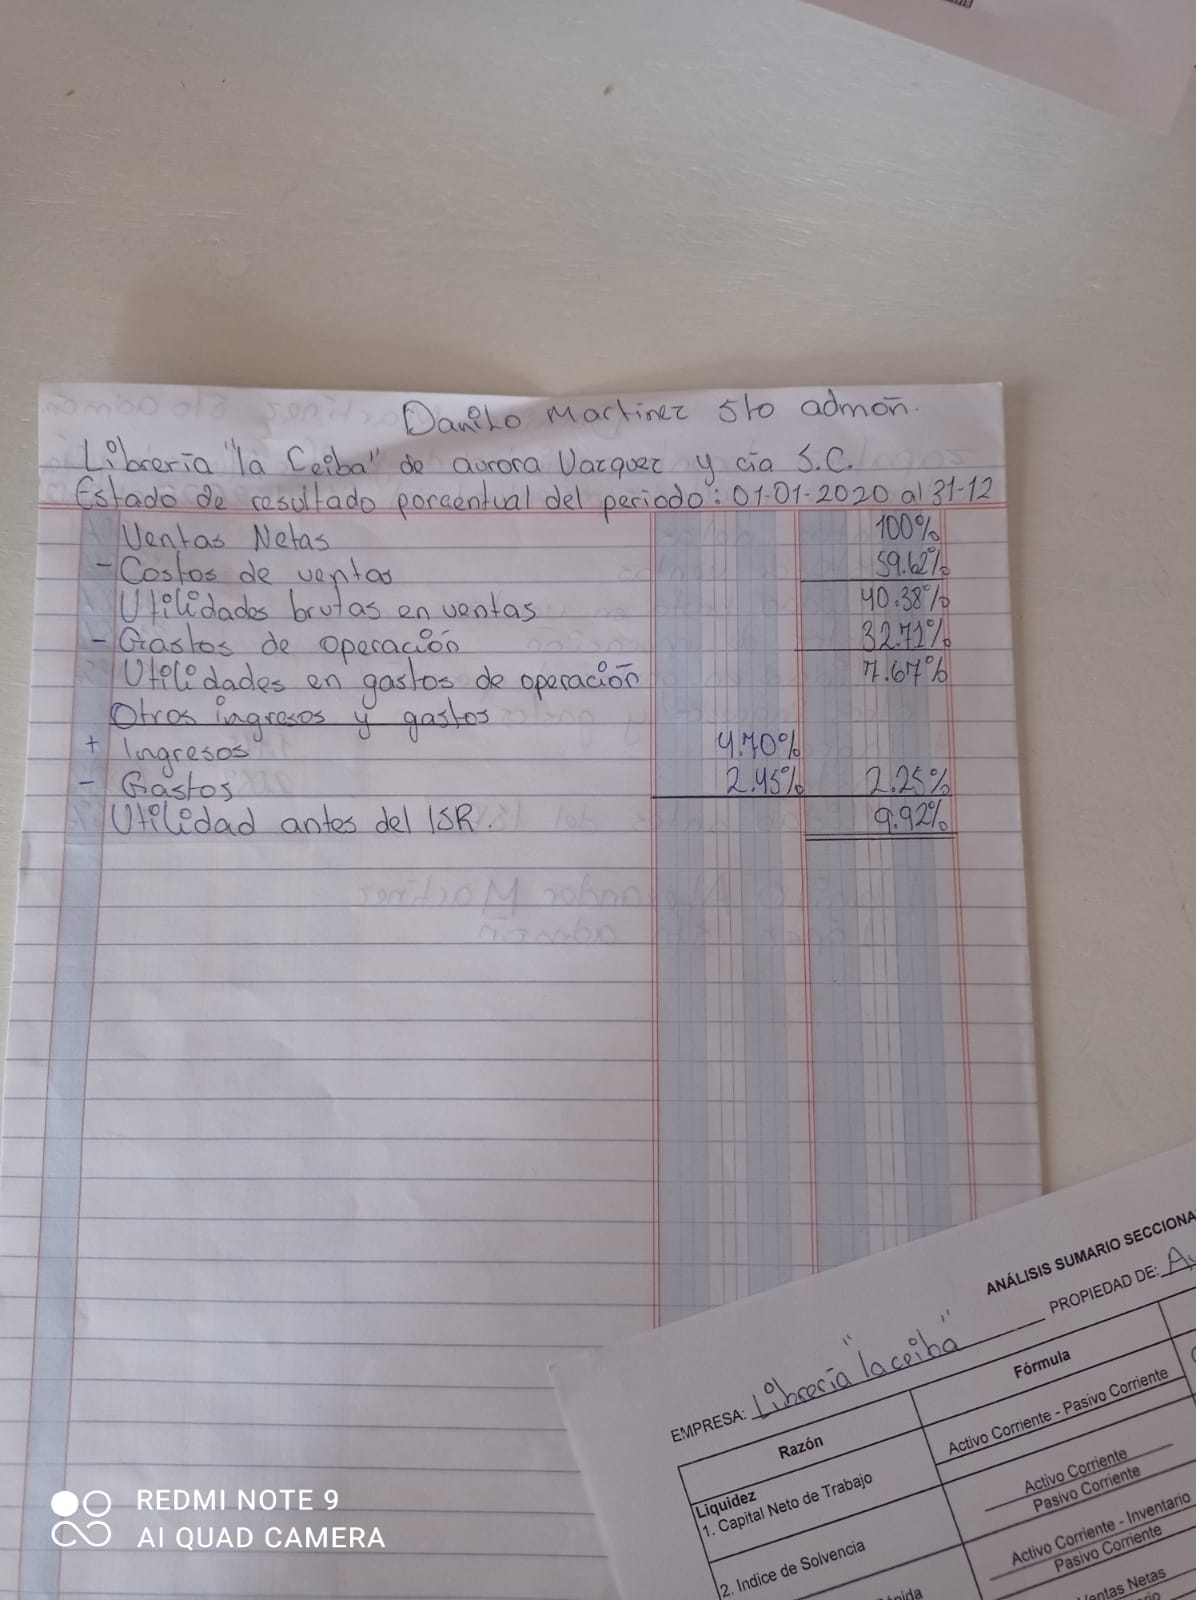 Danilo Martinez 5to admón.
Librería "la Ceiba" de aurora Vazquez y cía S.C.
Estado de resultado porcentual del periodo: 01-01-2020 al 31-12
Ventas Netas 100%
- Costos de ventas 59.62%
Utilidades brutas en ventas 40.38%
- Gastos de operación 32.71%
Utilidades en gastos de operación 7.67%
Otros ingresos y gastos
+ Ingresos 4.70%
- Gastos 2.45% 2.25%
Utilidad antes del ISR. 9.92%
ANÁLISIS SUMARIO SECCIONA
EMPRESA: Librería "la ceiba" PROPIEDAD DE: Au
Razón Fórmula
Liquidez
1. Capital Neto de Trabajo Activo Corriente - Pasivo Corriente
2. Indice de Solvencia Activo Corriente
Pasivo Corriente
Activo Corriente - Inventario
Pasivo Corriente
entas Netas
REDMI NOTE 9
AI QUAD CAMERA